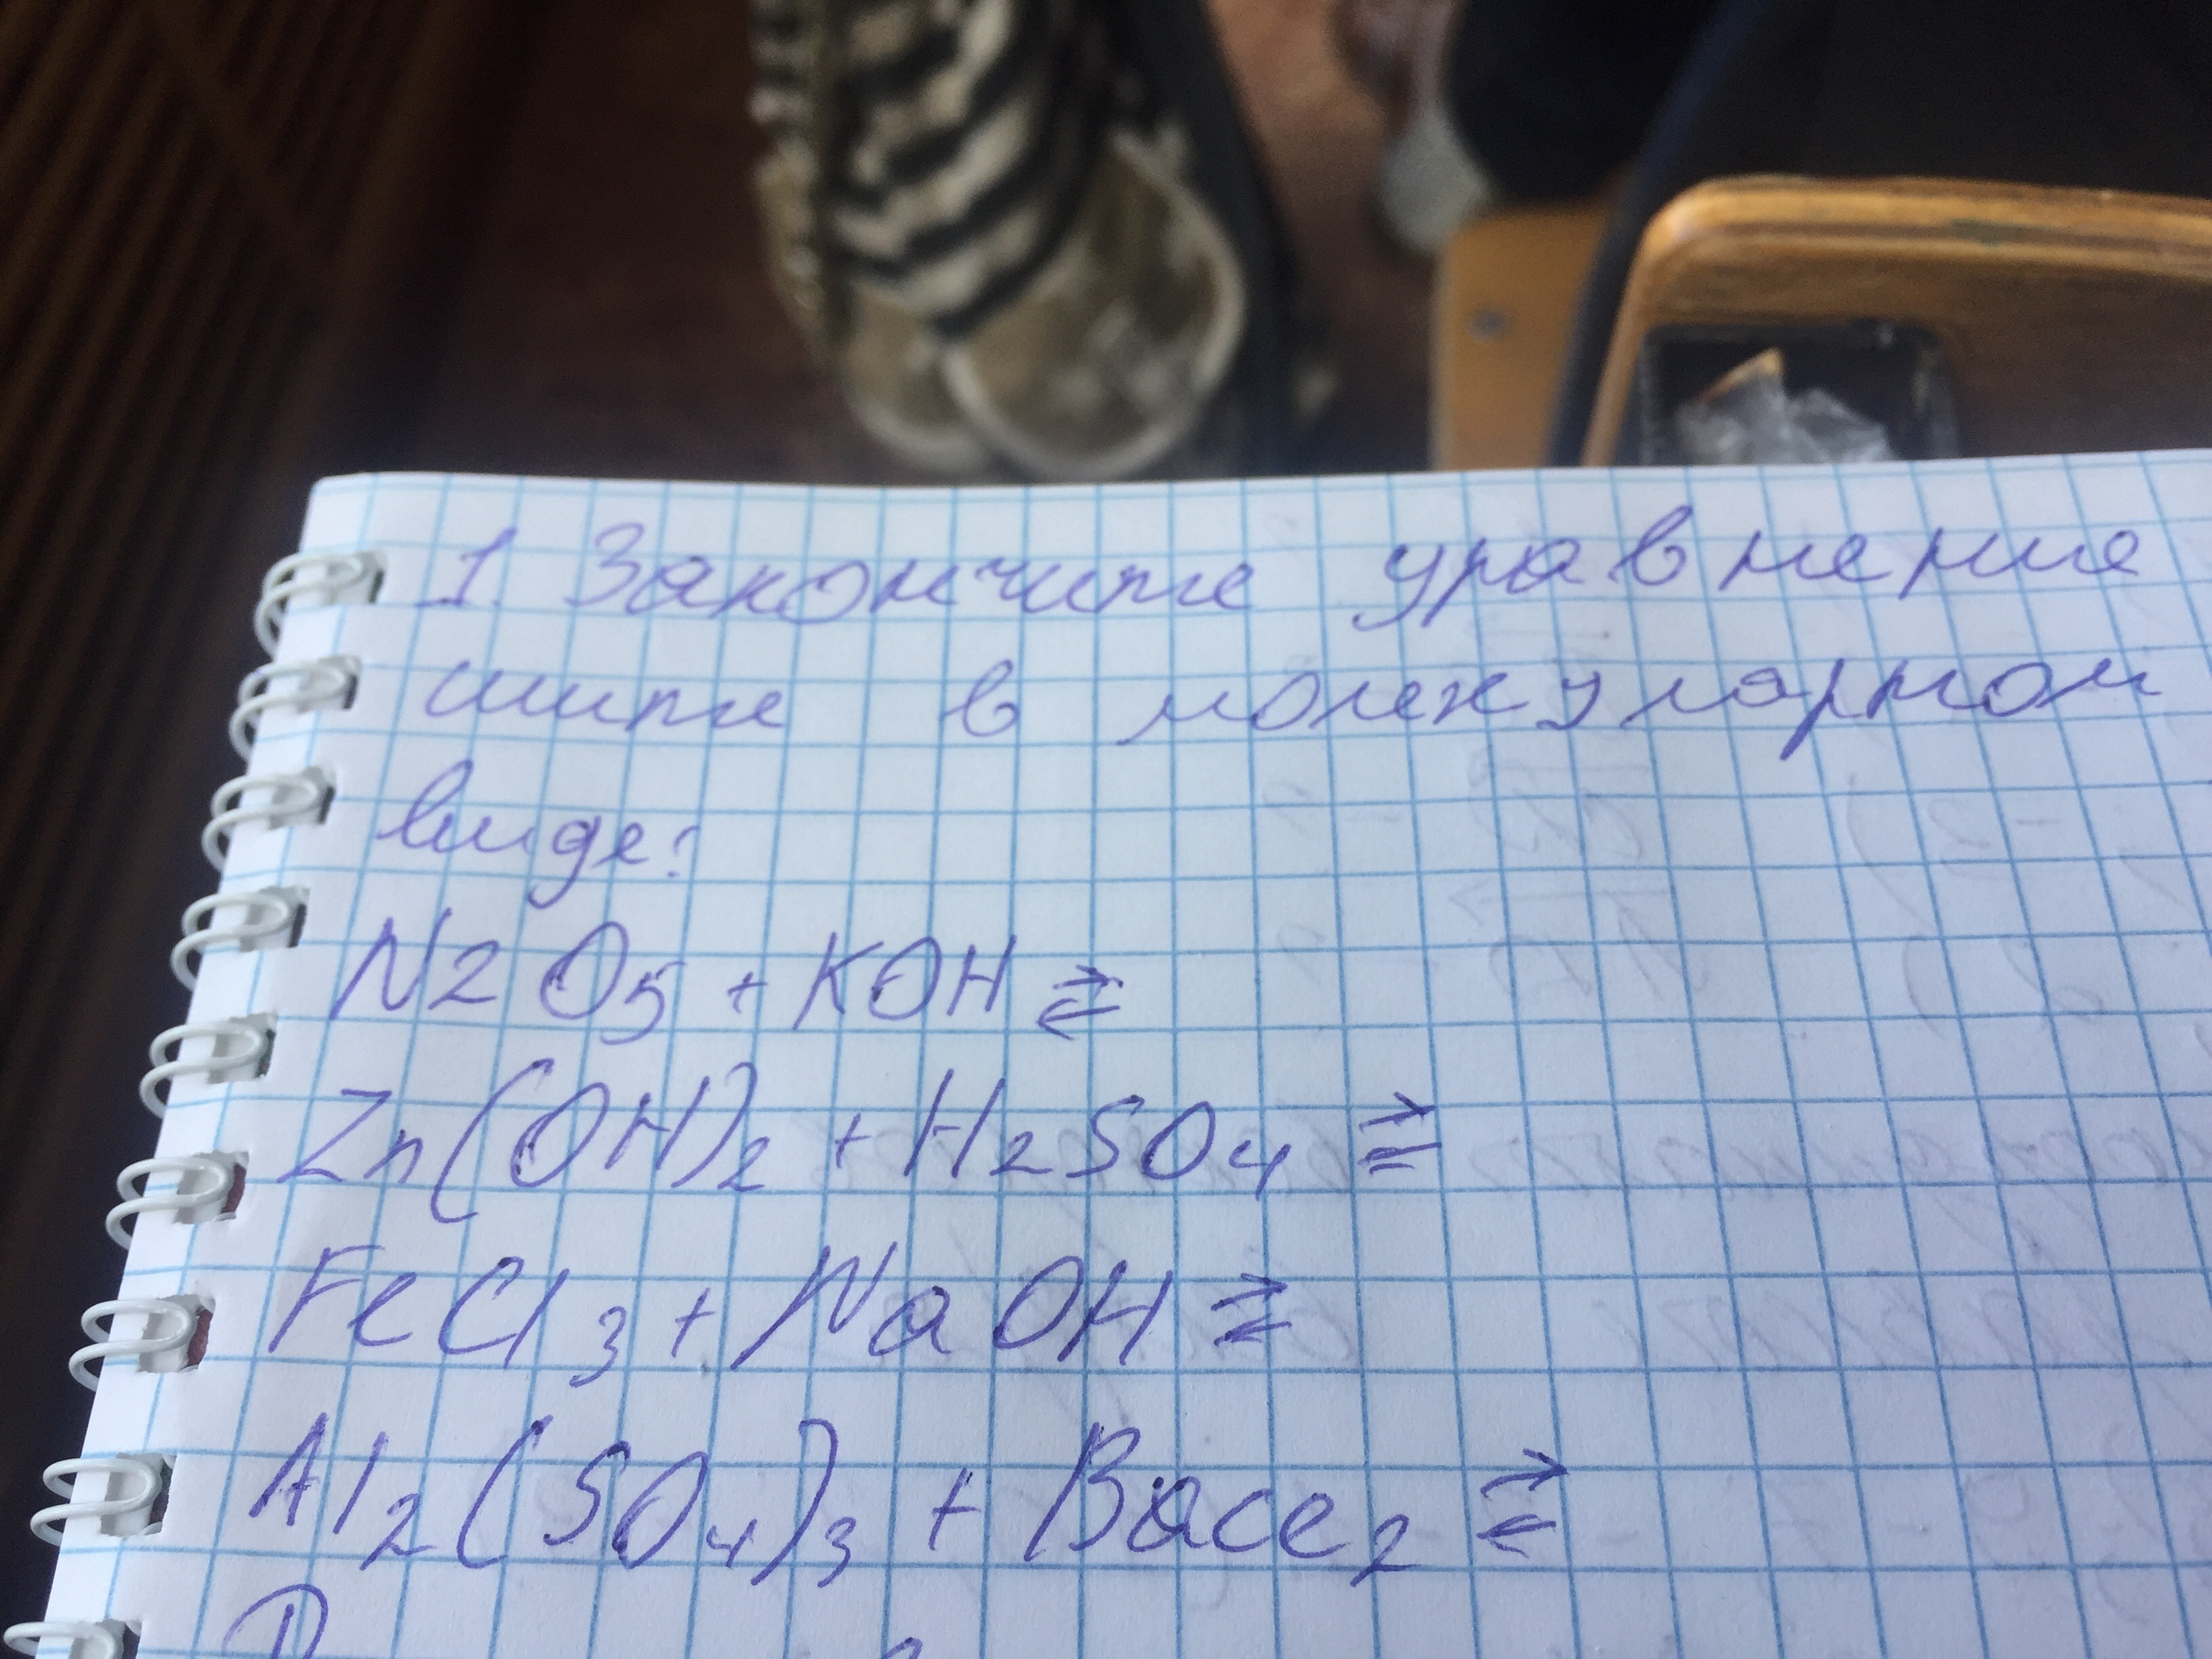 1. Закончите уравнение
шите в молекулярном
виде:
N2O5 + KOH ⇄
Zn(OH)2 + H2SO4 ⇄
FeCl3 + NaOH ⇄
Al2(SO4)3 + BaCl2 ⇄